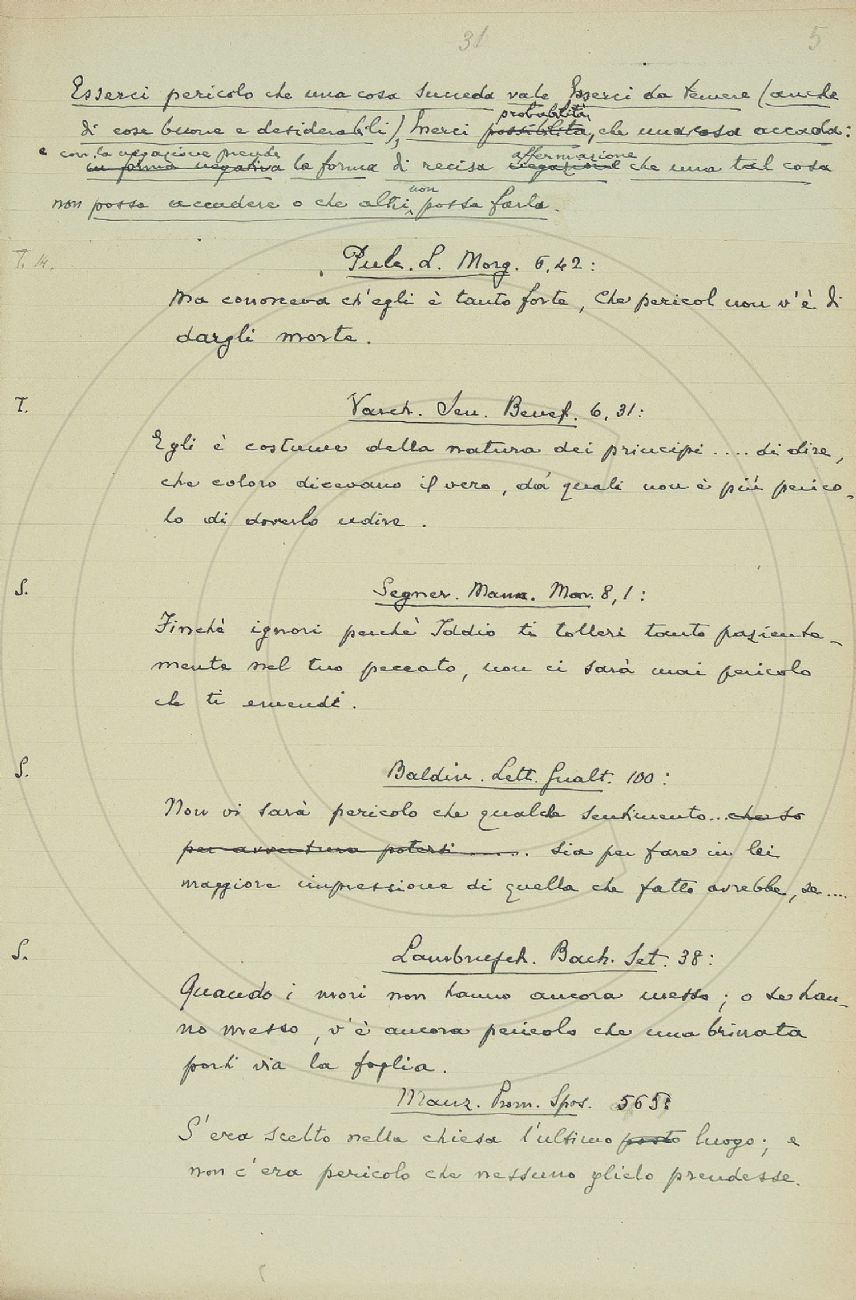 31 5
Esserci pericolo che una cosa succeda vale Esserci da temere (anche
probabilità
di cose buone e desiderabili), Esserci possibilità, che una cosa accada:
e con la negazione prende affermazione
in forma negativa la forma di recisa negazione che una tal cosa
non
non possa accadere o che altri possa farla.
T. 14. Pulc. L. Morg. 6, 42:
Ma conosceva ch'egli è tanto forte, Che pericol non v'è di
dargli morte.
T. Varch. Sen. Benef. 6, 31:
Egli è costume della natura dei principi .... di dire,
che coloro dicevano il vero, da' quali non è più perico-
lo di doverlo udire.
S. Segner. Mann. Mar. 8, 1:
Finchè ignori perchè Iddio ti tolleri tanto paziente-
mente nel tuo peccato, non ci sarà mai pericolo
che ti emendi.
S. Baldin. Lett. Gualt. 100:
Non vi sarà pericolo che qualche sentimento... che so
per avventura potersi ....... sia per fare in lei
maggiore impressione di quella che fatto avrebbe, se ....
S. Lambrusch. Bach. Set. 38:
Quando i mori non hanno ancora messo; o se han-
no messo, v'è ancora pericolo che una brinata
porti via la foglia.
Manz. Prom. Spos. 565:
S'era scelto nella chiesa l'ultimo posto luogo; e
non c'era pericolo che nessuno glielo prendesse.